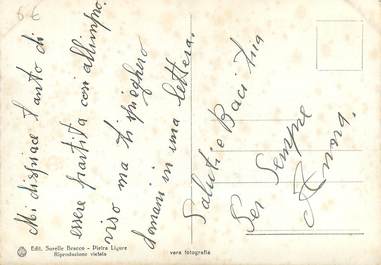 Mi dispiace tanto di
essere partita così all'impro.
viso ma ti spiegherò
domani in una lettera.
Saluti e Baci tua
Per Sempre
Anna.
6€
Edit. Sorelle Bracco - Pietra Ligure
Riproduzione vietata
vera fotografia